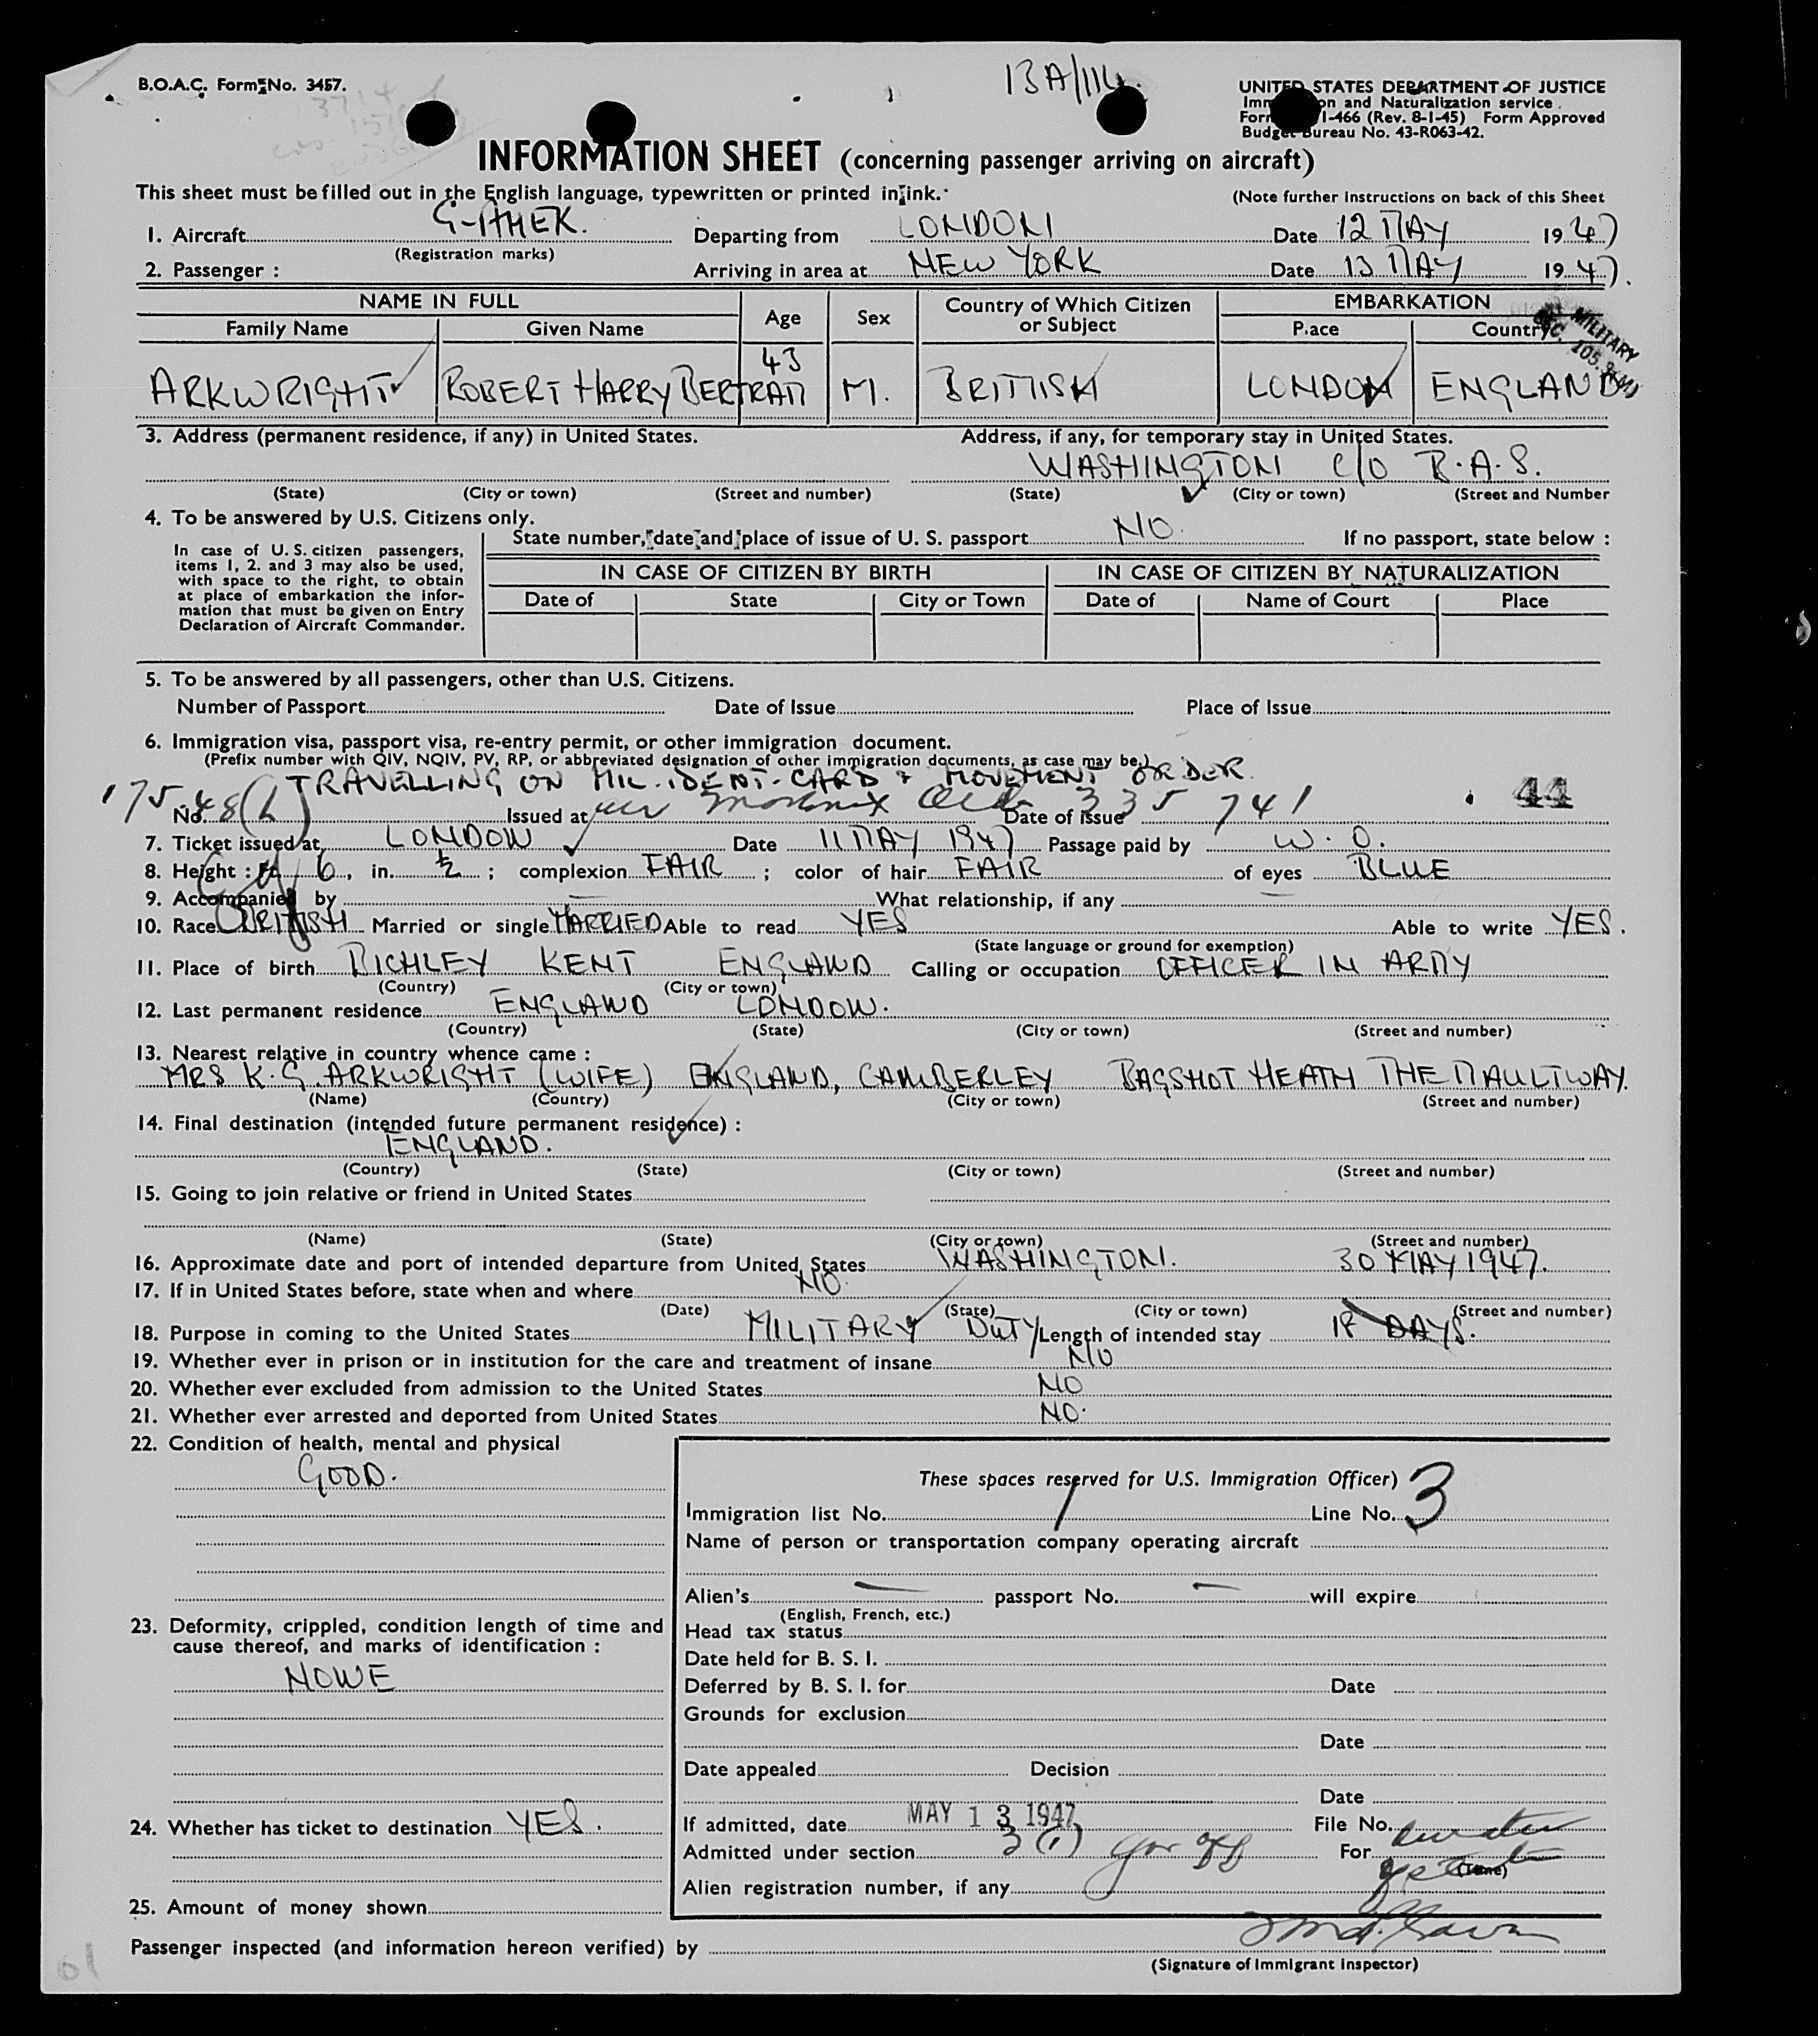 B.O.A.C. Form No. 3457.
13A/114.
UNITED STATES DEPARTMENT OF JUSTICE
Imm on and Naturalization service.
Form I-466 (Rev. 8-1-45) Form Approved
Budget Bureau No. 43-R063-42.
INFORMATION SHEET (concerning passenger arriving on aircraft)
This sheet must be filled out in the English language, typewritten or printed in ink.
(Note further instructions on back of this Sheet
1. Aircraft G-AHEK. Departing from LONDON Date 12 MAY 1947
(Registration marks)
2. Passenger : Arriving in area at NEW YORK Date 13 MAY 1947.
NAME IN FULL Age Sex Country of Which Citizen or Subject EMBARKATION
Family Name Given Name Place Country
MILITARY
SEC. 105.3(W)
43
ARKWRIGHT ROBERT HARRY BERTRAM M. BRITISH LONDON ENGLAND
3. Address (permanent residence, if any) in United States. Address, if any, for temporary stay in United States.
WASHINGTON c/o B.A.S.
(State) (City or town) (Street and number) (State) (City or town) (Street and Number
4. To be answered by U.S. Citizens only.
State number, date and place of issue of U. S. passport NO. If no passport, state below :
In case of U.S. citizen passengers,
items 1, 2. and 3 may also be used,
with space to the right, to obtain
at place of embarkation the infor-
mation that must be given on Entry
Declaration of Aircraft Commander.
IN CASE OF CITIZEN BY BIRTH IN CASE OF CITIZEN BY NATURALIZATION
Date of State City or Town Date of Name of Court Place
5. To be answered by all passengers, other than U.S. Citizens.
Number of Passport Date of Issue Place of Issue
6. Immigration visa, passport visa, re-entry permit, or other immigration document.
(Prefix number with QIV, NQIV, PV, RP, or abbreviated designation of other immigration documents, as case may be.)
TRAVELLING ON MIL. IDENT. CARD & MOVEMENT ORDER.
175.48(h) No. Issued at Date of issue 335741 44
7. Ticket issued at LONDON Date 11 MAY 1947 Passage paid by W.O.
8. Height : ft. 6, in. ½ ; complexion FAIR ; color of hair FAIR of eyes BLUE
9. Accompanied by — What relationship, if any —
10. Race BRITISH Married or single MARRIED Able to read YES Able to write YES.
(State language or ground for exemption)
11. Place of birth BICHLEY KENT ENGLAND Calling or occupation OFFICER IN ARMY
(Country) (City or town)
12. Last permanent residence ENGLAND LONDON.
(Country) (State) (City or town) (Street and number)
13. Nearest relative in country whence came :
MRS K.G. ARKWRIGHT (WIFE) ENGLAND, CAMBERLEY BAGSHOT HEATH THE MAULTWAY.
(Name) (Country) (City or town) (Street and number)
14. Final destination (intended future permanent residence) :
ENGLAND.
(Country) (State) (City or town) (Street and number)
15. Going to join relative or friend in United States
(Name) (State) (City or town) (Street and number)
16. Approximate date and port of intended departure from United States WASHINGTON. 30 MAY 1947.
17. If in United States before, state when and where NO.
(Date) (State) (City or town) (Street and number)
18. Purpose in coming to the United States MILITARY DUTY Length of intended stay 18 DAYS.
19. Whether ever in prison or in institution for the care and treatment of insane NO
20. Whether ever excluded from admission to the United States NO
21. Whether ever arrested and deported from United States NO.
22. Condition of health, mental and physical
GOOD.
23. Deformity, crippled, condition length of time and
cause thereof, and marks of identification :
NONE
24. Whether has ticket to destination YES.
25. Amount of money shown
These spaces reserved for U.S. Immigration Officer)
Immigration list No. 1 Line No. 3
Name of person or transportation company operating aircraft
Alien's — passport No. — will expire
(English, French, etc.)
Head tax status
Date held for B. S. I.
Deferred by B. S. I. for Date
Grounds for exclusion
Date
Date appealed Decision
Date
If admitted, date MAY 13 1947 File No. duration
Admitted under section 3(1) Gov off For
(Time)
Alien registration number, if any
Passenger inspected (and information hereon verified) by
(Signature of Immigrant Inspector)
01